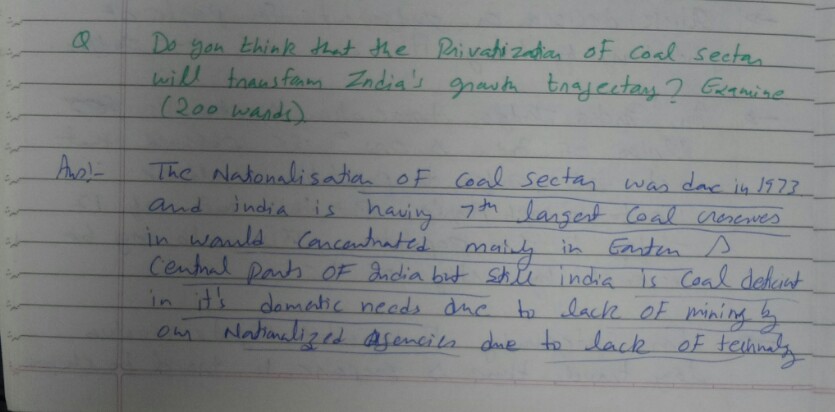 Q Do you think that the Privatization of coal sector
will transform India's growth trajectory? Examine
(200 words)
Ans:- The Nationalisation of coal sector was done in 1973
and india is having 7th largest Coal reserves
in would concentrated mainly in Easten &
Central parts of India but still india is coal deficient
in it's domestic needs due to lack of mining by
our Nationalized agencies due to lack of technology